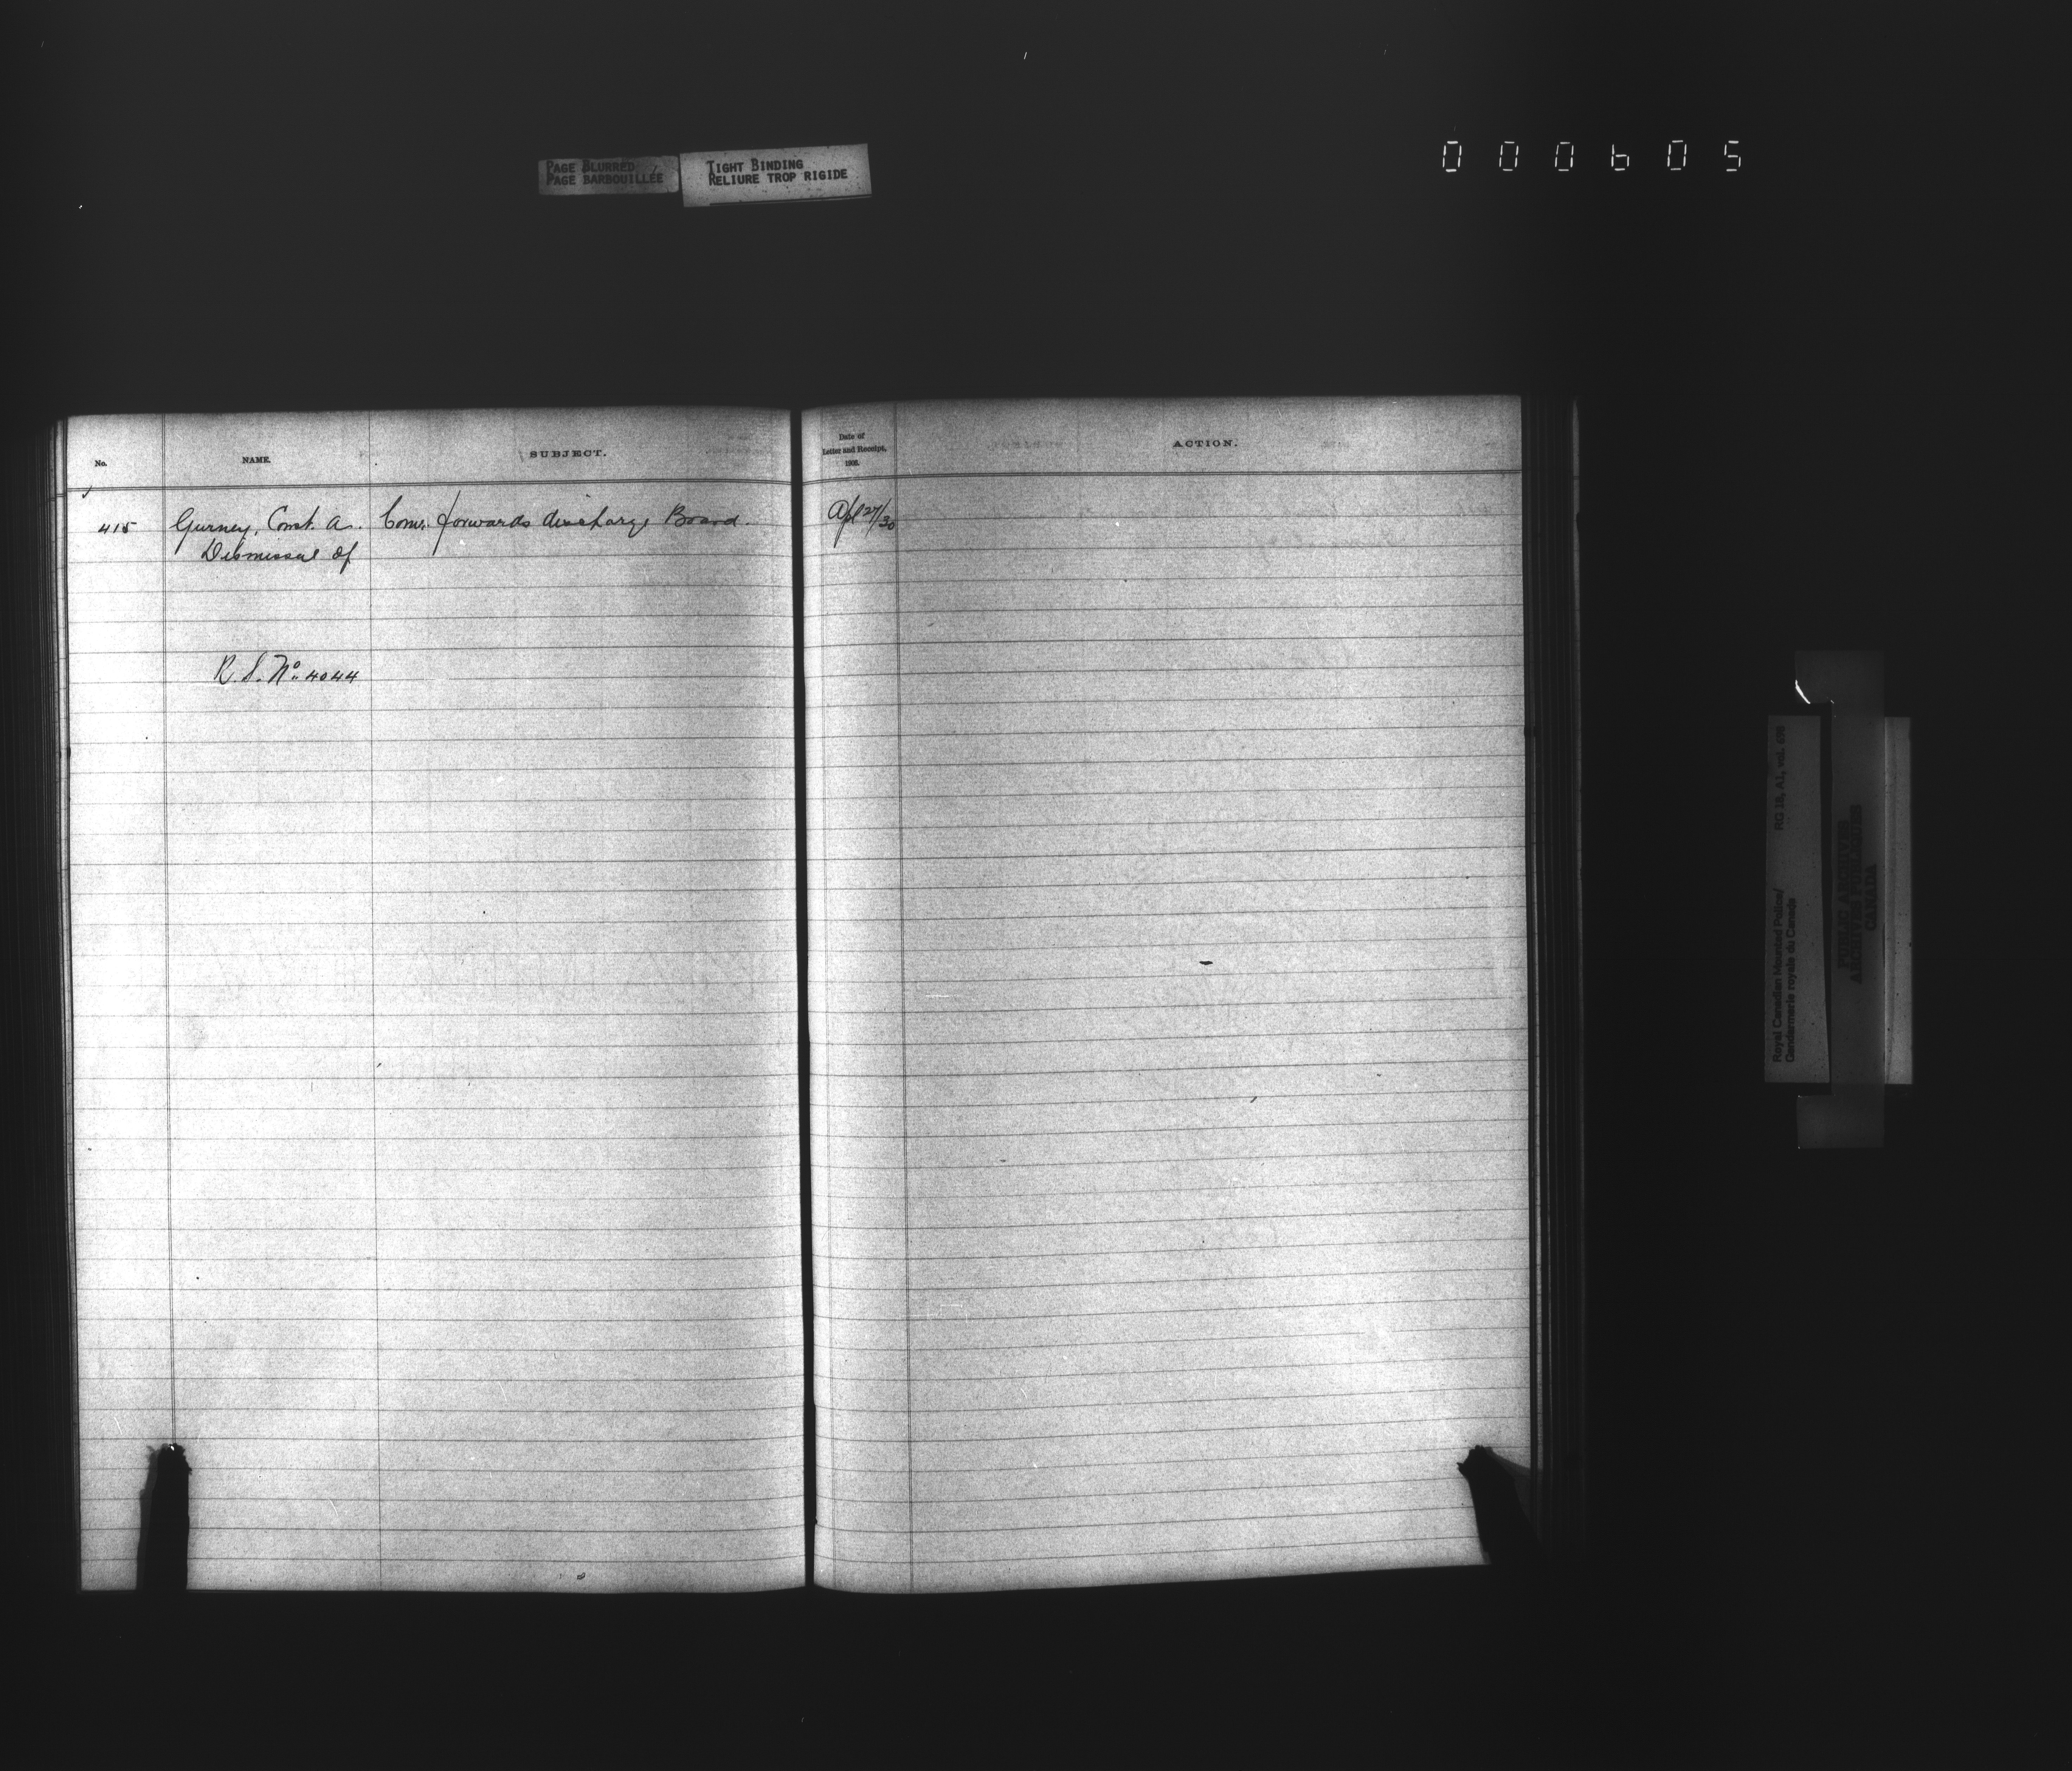 PAGE BLURRED
PAGE BARBOUILLÉE
TIGHT BINDING
RELIURE TROP RIGIDE
000605
No.
NAME.
SUBJECT.
Date of
Letter and Receipt,
1906.
ACTION.
415 Gurney, Const. A. Comr. forwards discharge Board. Apl 27/30
Dismissal of
R.S. No. 4044
Royal Canadian Mounted Police/ RG 18, A1, vol.
Gendarmerie royale du Canada
PUBLIC ARCHIVES
ARCHIVES PUBLIQUES
CANADA